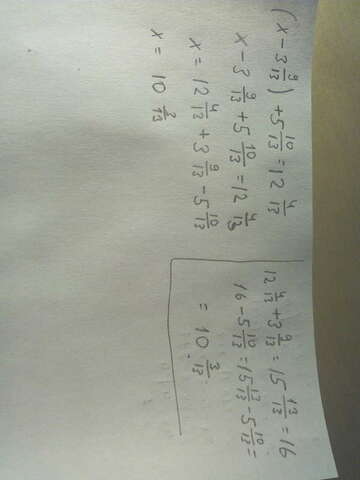 (x - 3 9/13) + 5 10/13 = 12 4/13
x - 3 9/13 + 5 10/13 = 12 4/13
x = 12 4/13 + 3 9/13 - 5 10/13
x = 10 3/13
12 4/13 + 3 9/13 = 15 13/13 = 16
16 - 5 10/13 = 15 13/13 - 5 10/13 =
= 10 3/13